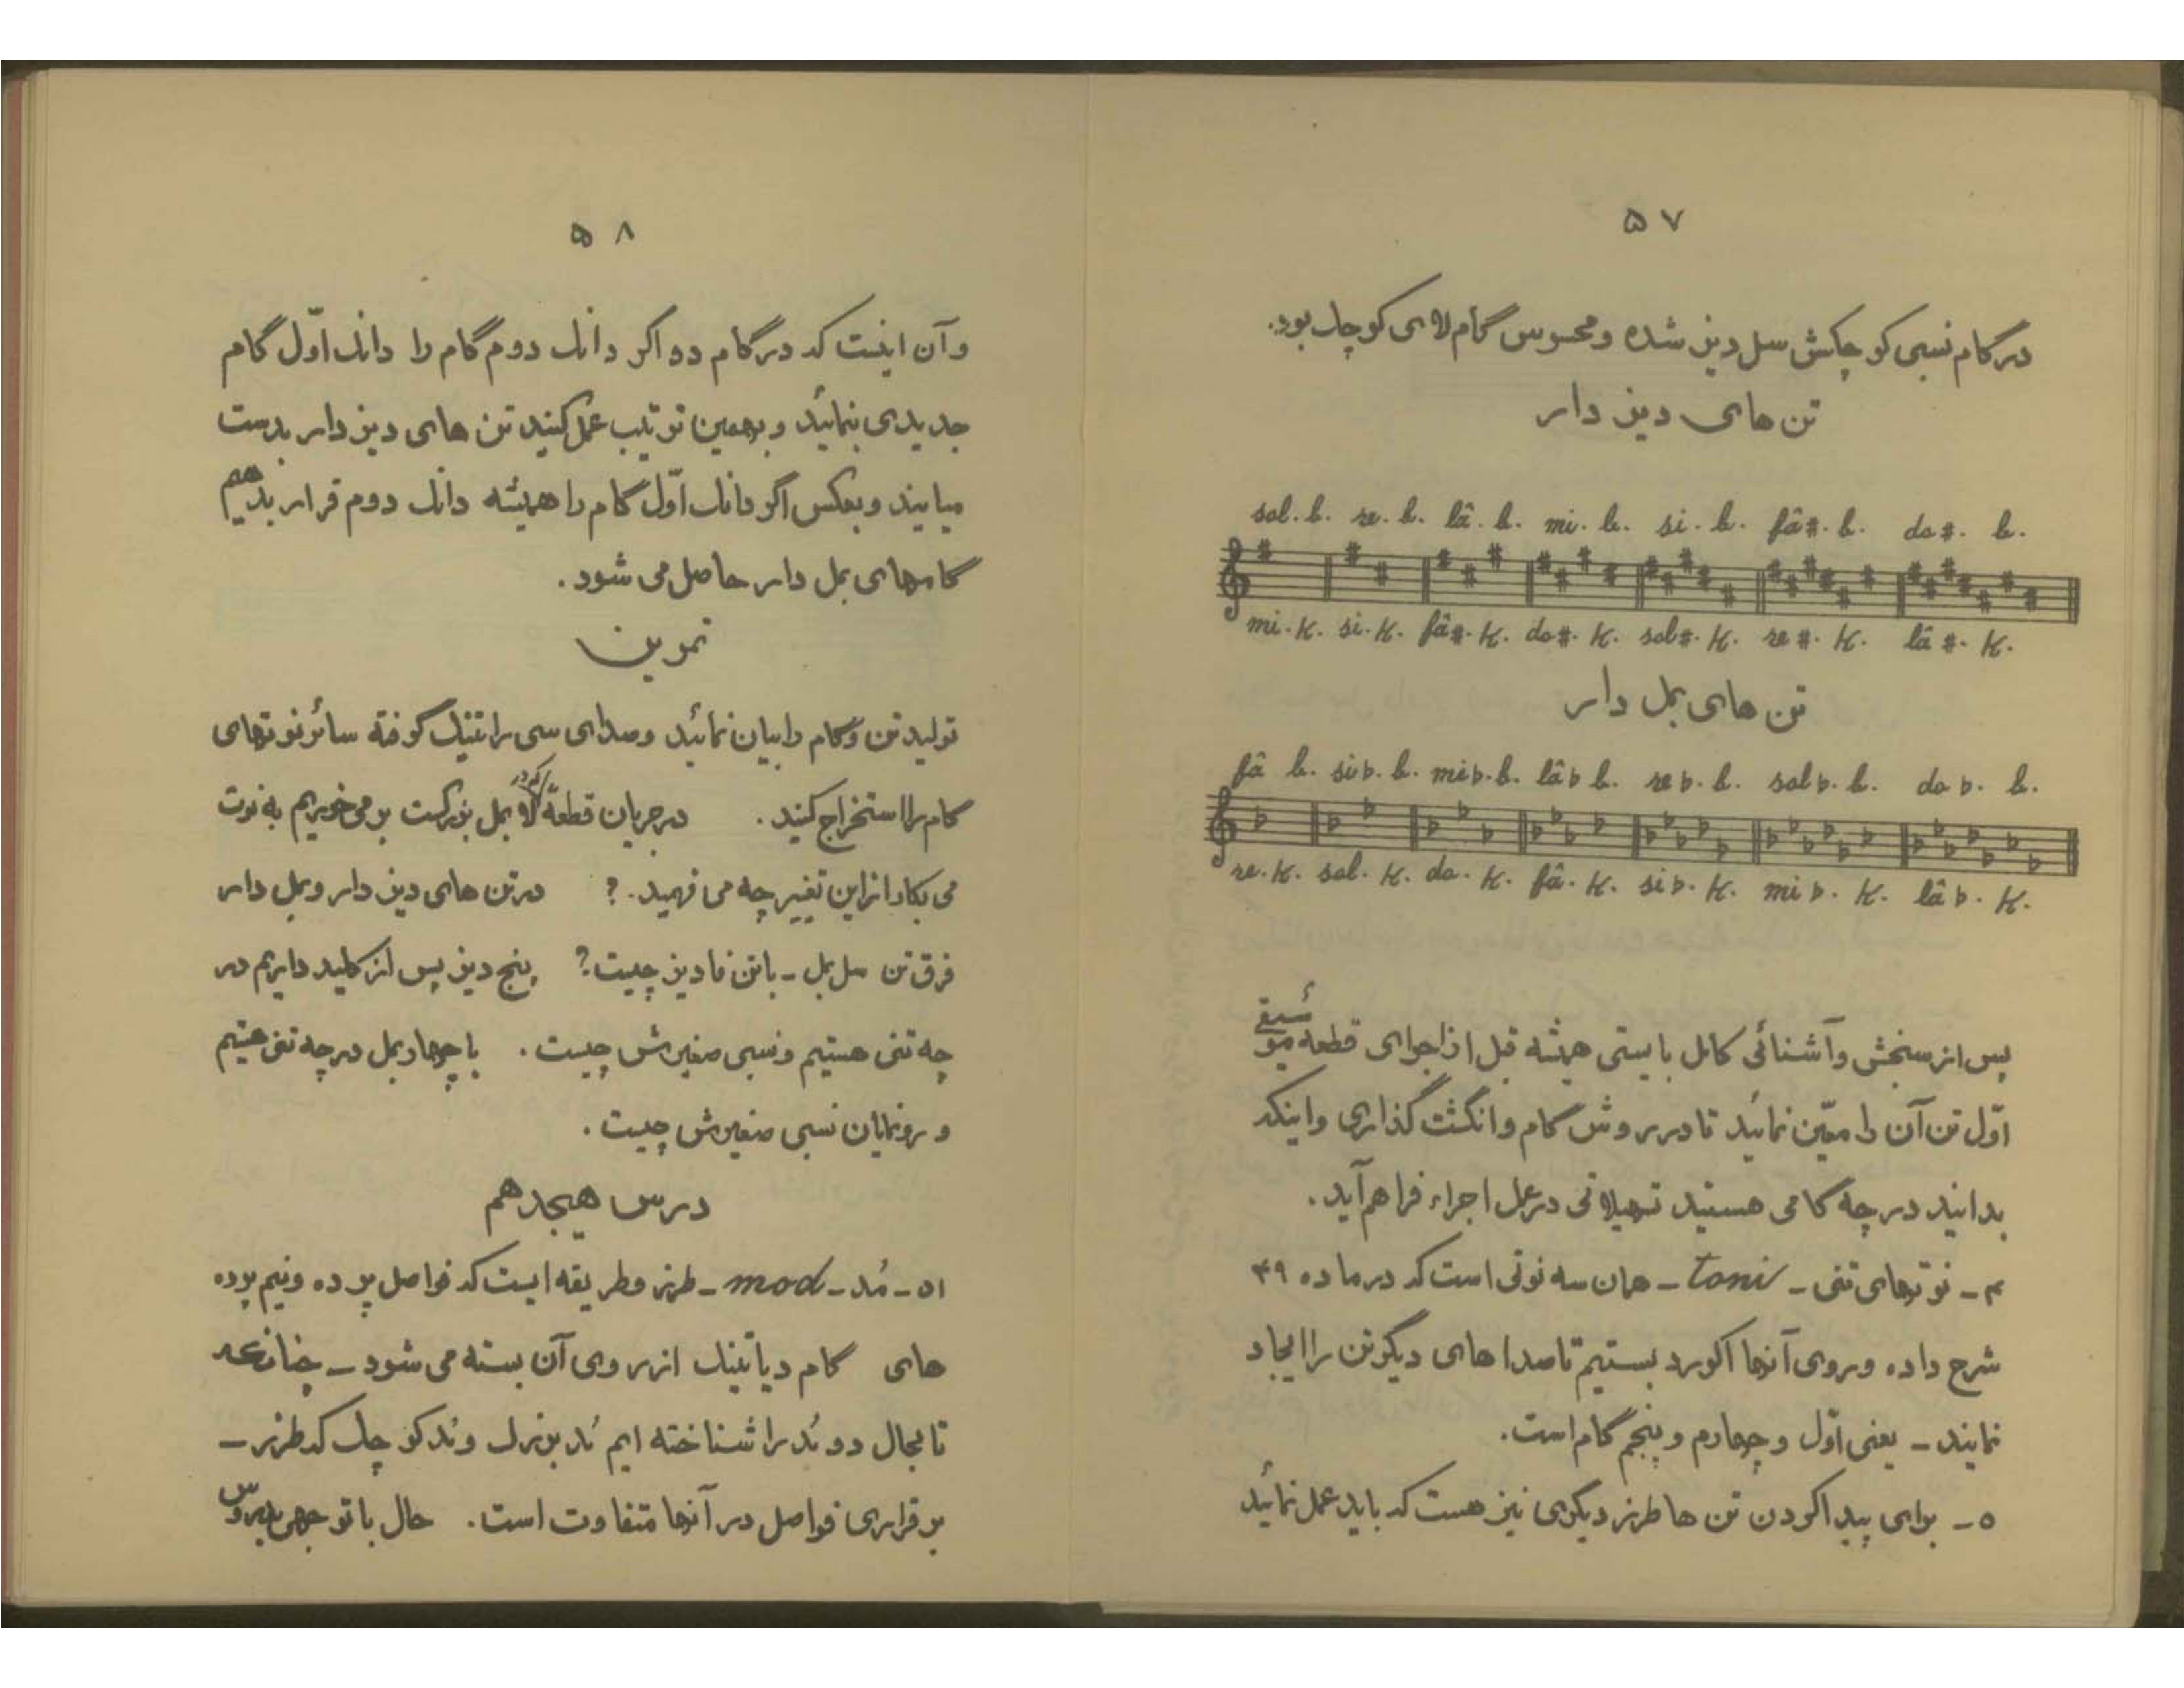 ۵۷
در گام نسبی کوچکش سل دیز شده و محسوس گام لای کوچک بود.
تن های دیز دار
sol. b. re. b. lâ. b. mi. b. si. b. fâ#. b. do #. b.
mi. K. si. K. fâ#. K. do#. K. sol#. K. re #. K. lâ #. K.
تن های بمل دار
fâ b. si♭. b. mi♭. b. lâ♭ b. re ♭. b. sol ♭. b. do ♭. b.
re. K. sol. K. do. K. fâ. K. si♭. K. mi ♭. K. lâ ♭. K.
پس از سنجش و آشنائی کامل بایستی همیشه قبل از اجرای قطعه موسیقی
اوّل تن آن را معیّن نمائید تا در روش گام و انگشت گذاری و اینکه
بدانید در چه گامی هستید تسهیلاتی در عمل اجراء فراهم آید.
۴ - نوتهای تنی - toni - همان سه نوتی است که در ماده ۴۹
شرح داده و روی آنها آکورد بستیم تا صداهای دیگر تن را ایجاد
نمایند - یعنی اوّل و چهارم و پنجم گام است.
۵ - برای پیدا کردن تن ها طرز دیگری نیز هست که باید عمل نمائید
۵۸
و آن اینست که در گام دو اگر دانک دوم گام را دانک اوّل گام
جدیدی بنمائید و بهمین ترتیب عمل کنید تن های دیز دار بدست
میایند و بعکس اگر دانک اوّل گام را همیشه دانک دوم قرار بدهیم
گامهای بمل دار حاصل می شود.
تمرین
تولید تن و گام را بیان نمائید و صدای سی را تنیک گرفته سائر نوتهای
گام را استخراج کنید. در جریان قطعهٔ که در لا بمل بزرگست بر می خوریم به نوت
می بکار از این تغییر چه می فهمید.؟ در تن های دیز دار و بمل دار
فرق تن سل بمل - با تن فا دیز چیست؟ پنج دیز پس از کلید داریم در
چه تنی هستیم و نسبی صغیرش چیست. با چهار بمل در چه تنی هستیم
و رونمایان نسبی صغیرش چیست.
درس هیجدهم
۵۱ - مُد - mod - طرز و طریقه ایست که فواصل پرده و نیم پرده
های گام دیاتنیک از روی آن بسته می شود - چنانچه
تا بحال دو مُد را شناخته ایم مُد بزرگ و مُد کوچک که طرز -
برقراری فواصل در آنها متفاوت است. حال با توجهی بدروس